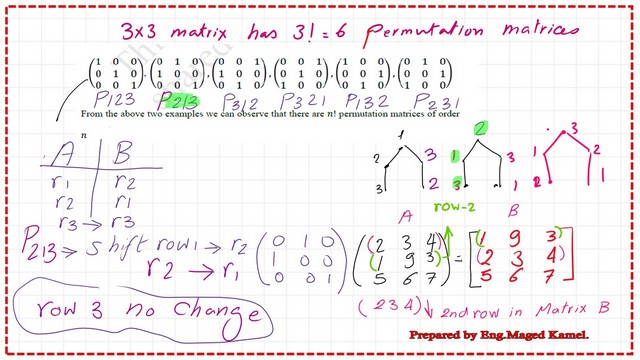 3x3 matrix has 3! = 6 permutation matrices
(1 0 0 (0 1 0 (0 0 1 (0 0 1 (1 0 0 (0 1 0
0 1 0 1 0 0 1 0 0 0 1 0 0 0 1 0 0 1
0 0 1), 0 0 1), 0 1 0), 1 0 0), 0 1 0), 1 0 0)
P123 P213 P312 P321 P132 P231
From the above two examples we can observe that there are n! permutation matrices of order
n
A B
r1 r2
r2 r1
r3 → r3
1 2 3
2 3 1 3 2
3 2 3 1 2 1
row-2
A B
P213 ⇒ shift row1 → r2
r2 → r1
(0 1 0 (2 3 4) [1 9 3)
1 0 0 (1 9 3) = (2 3 4)
0 0 1) 5 6 7) 5 6 7]
row 3 no change
(2 3 4) ↓ 2nd row in Matrix B
Prepared by Eng.Maged Kamel.